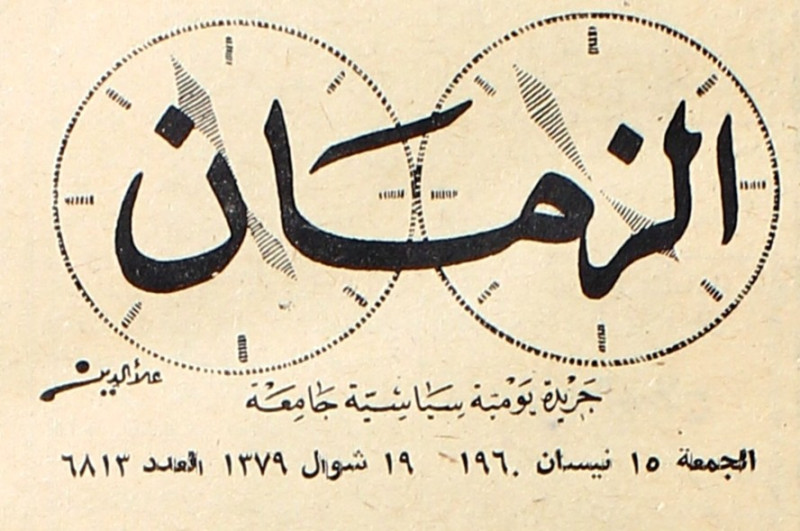 الزمان
علاء الدين
جَرِيْدَة يَوْمْيَة سِيَاسِيَّة جَامِعَة
الجمعة ١٥ نيسان ١٩٦٠ ١٩ شوال ١٣٧٩ العدد ٦٨١٣